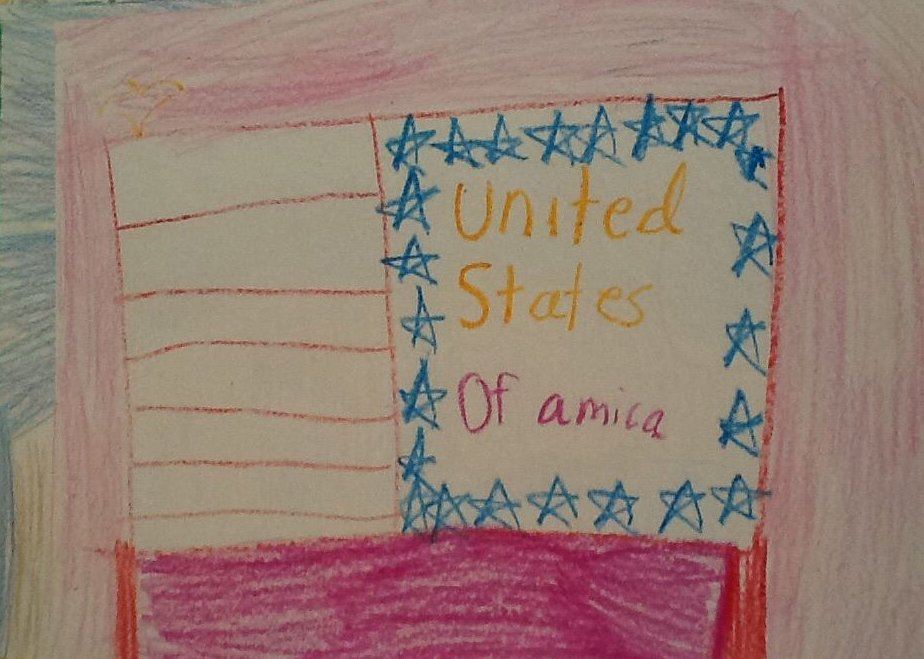 United
States
Of amica